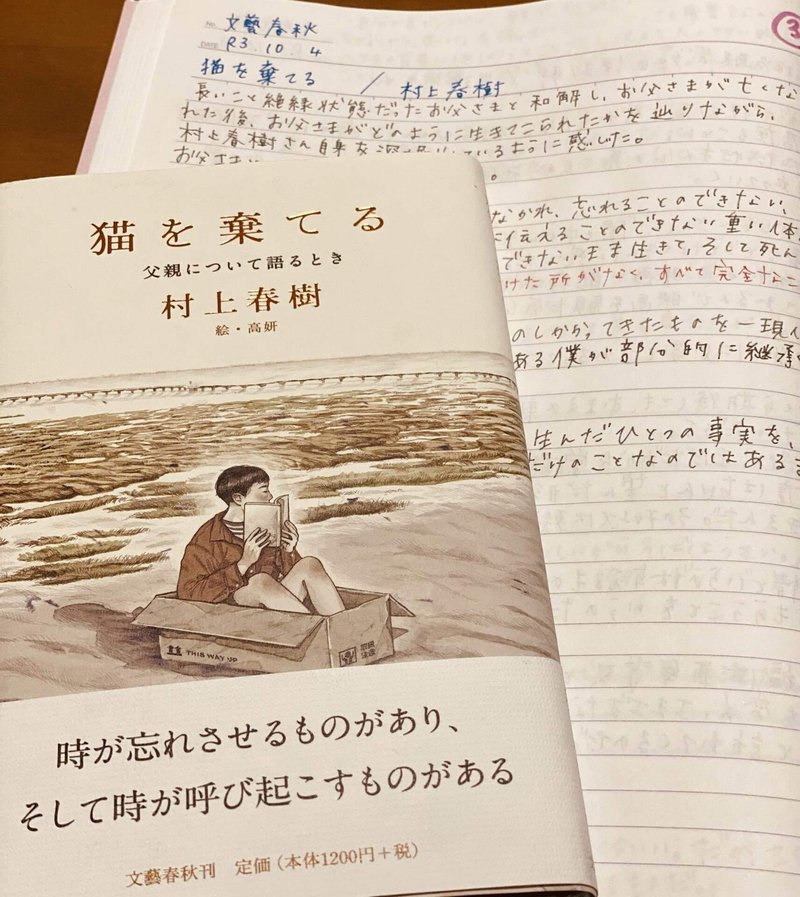 No. 文藝春秋
DATE R3.10.4
③
猫を棄てる / 村上春樹
長いこと絶縁状態だったお父さまと和解し、お父さまが亡くな
れた後、お父さまがどのように生きてこられたかを辿りながら、
村上春樹さん自身を深く いているように感じた。
お父さま
なかれ、忘れることのできない、
伝えることのできない重い体
できないまま生きて、そして死ん
けた所がなく、すべて完全なこ
のしかかってきたものを一現代
ある僕が部分的に継承
生んだひとつの事実を、
だけのことなのではある
猫を棄てる
父親について語るとき
村上春樹
絵・高妍
THIS WAY UP
取扱注意
時が忘れさせるものがあり、
そして時が呼び起こすものがある
文藝春秋刊 定価(本体1200円+税)